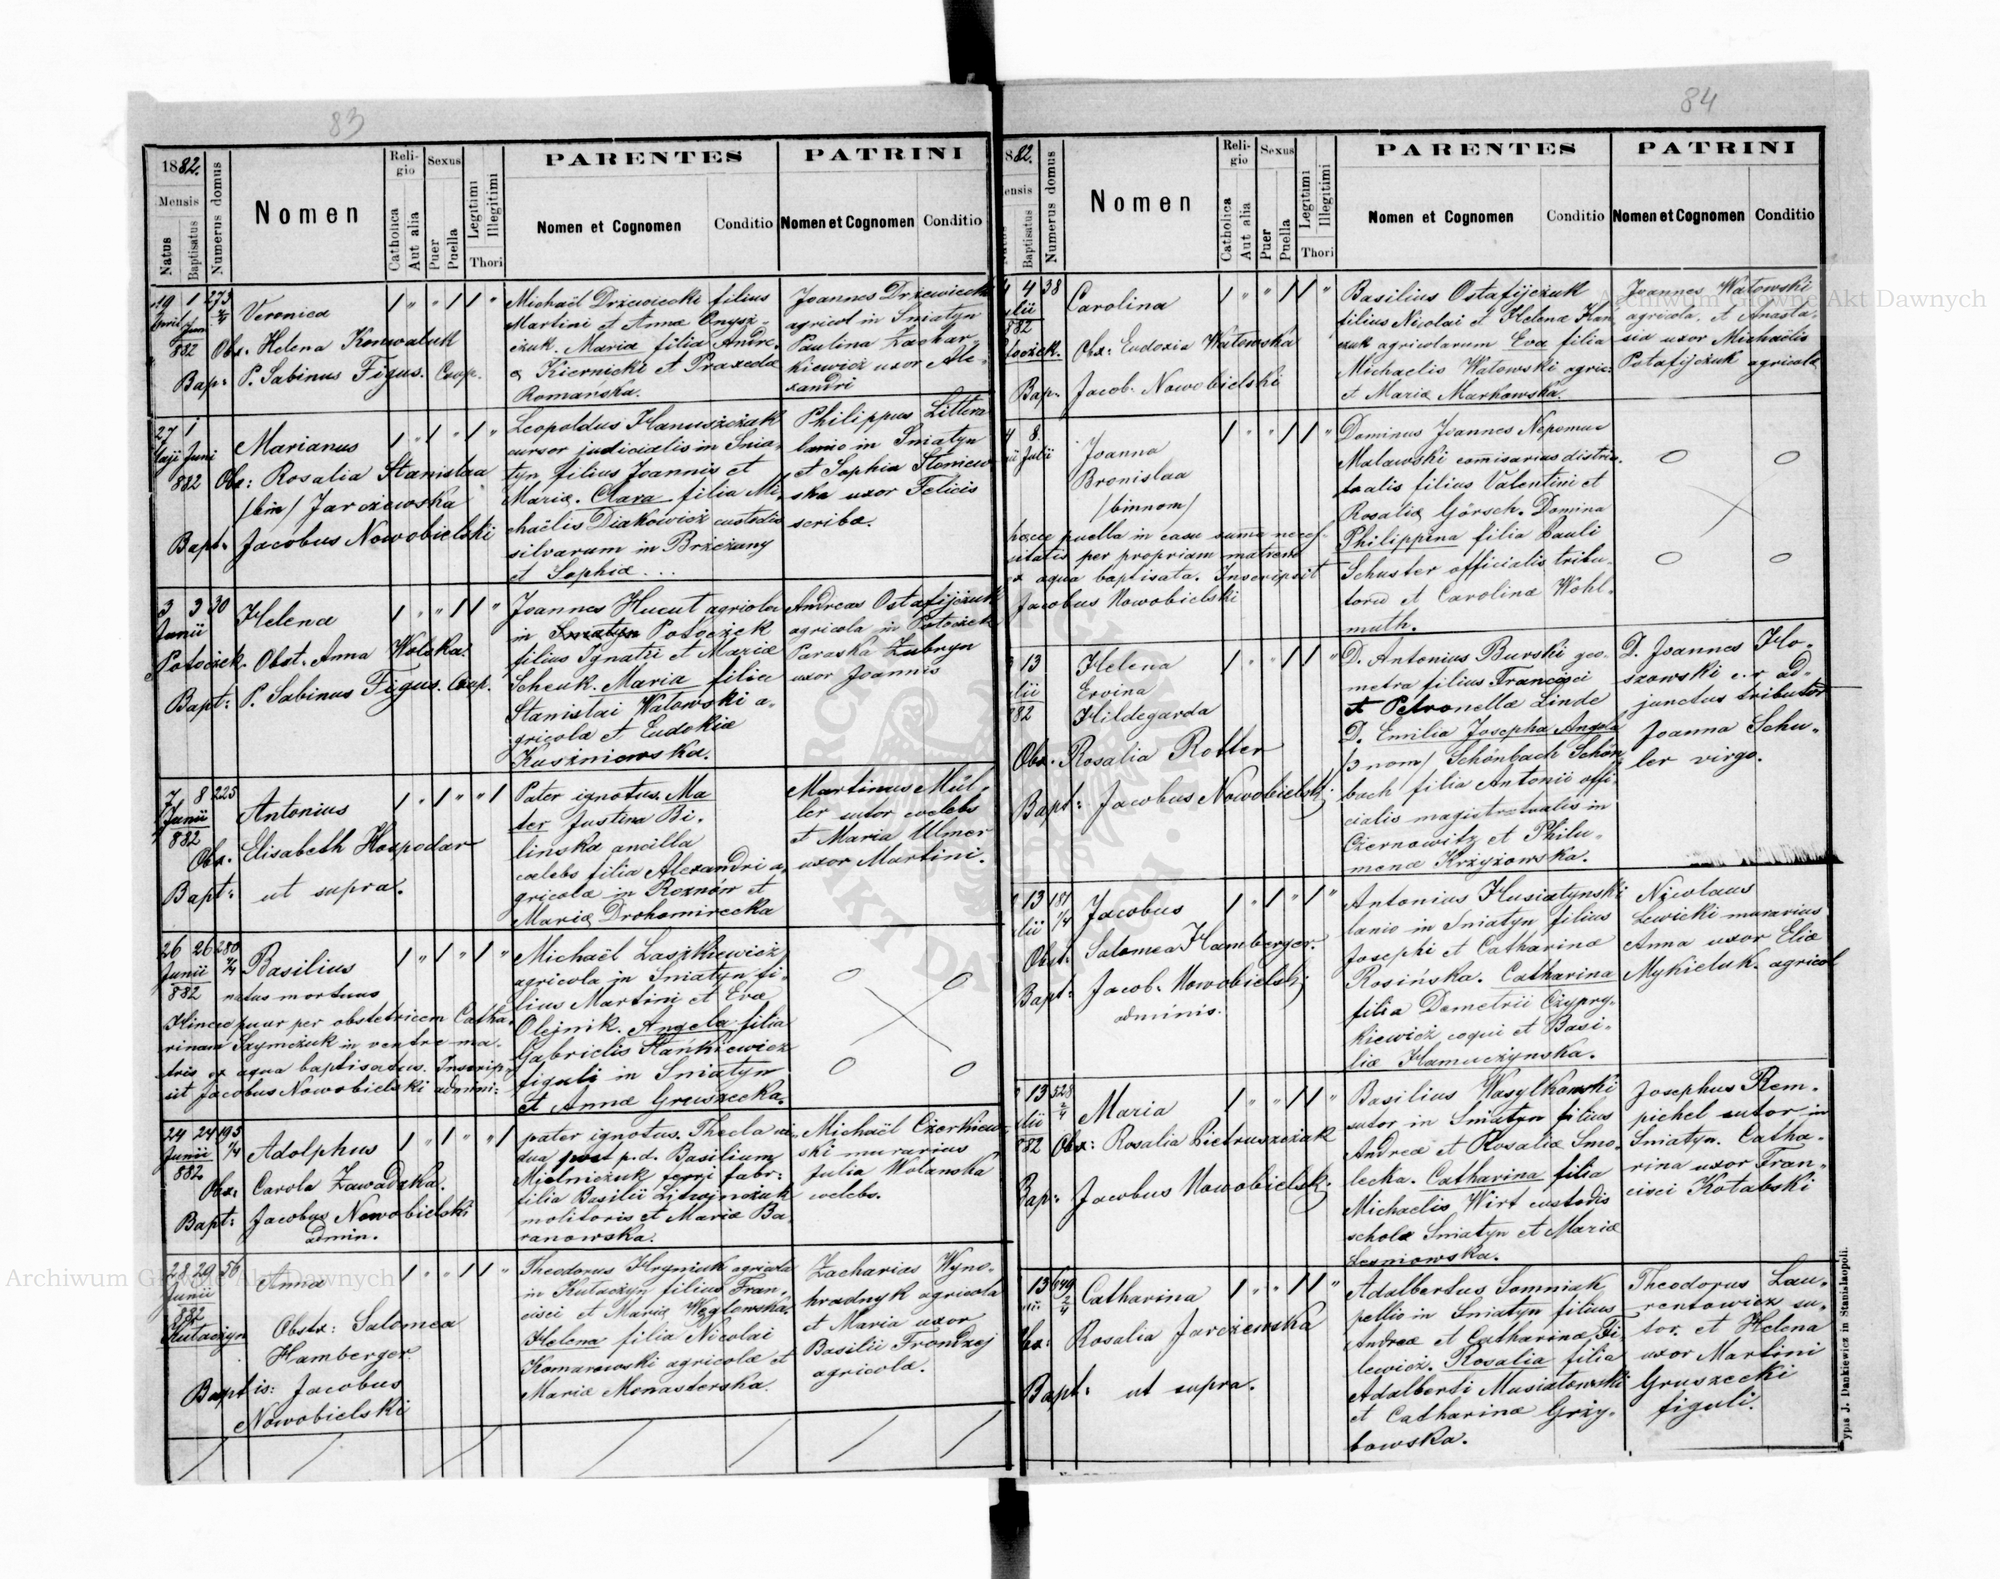 83
1882.
Mensis
Natus
Baptisatus
Numerus domus
Nomen
Religio
Catholica
Aut alia
Sexus
Puer
Puella
Legitimi
Illegitimi
Thori
PARENTES
Nomen et Cognomen
Conditio
PATRINI
Nomen et Cognomen
Conditio
Veronica
Obs. Helena Konwaluk
Bap: P. Sabinus Figus. Coop.
Michaël Drzewiecki filius
Martini et Annæ Onysz-
czuk. Maria filia Andre-
æ Kiernicki et Praxedæ
Romańska.
Joannes Drzewiecki
agricol in Sniatyn
Paulina Zachar-
kiewicz uxor Ale-
xandri
27 1
Maji Juni
882
Marianus
Obs: Rosalia Stanislaa
/bin/ Jarczewska
Bapt: Jacobus Nowobielski
Leopoldus Hanuszczak
cursor judicialis in Snia-
tyn filius Joannis et
Mariæ. Clara filia Mi-
chaëlis Diakowicz custodis
silvarum in Brzeżany
et Sophiæ ...
Philippus Littera
lanio in Sniatyn
et Sophia Stoniew-
ska uxor Felicis
scribæ.
3 3 30
Junii
Potoczek.
Helena
Obst. Anna Wolska.
Bapt: P. Sabinus Figus. Coop.
Joannes Hucut agricola
in Sniatyn Potoczek
filius Ignatii et Mariæ
Scheuk. Maria filia
Stanislai Watowski a-
gricolæ et Eudokiæ
Kuszniowska.
Andreas Ostafijczuk
agricola in Potoczek
Paraska Zubryn
uxor Joannis
7 8 225
Junii
882
Antonius
Obs. Elisabeth Hospodar
Bapt: ut supra.
Pater ignotus. Ma
ter Justina Bi-
linska ancilla
cælebs filia Alexandri a-
gricolæ in Roznów et
Mariæ Drohomirecka
Martinus Mül-
ler sutor cælebs
et Maria Ulmer
uxor Martini.
26 26 280
Junii
882
Basilius
natus mortuus
Hincce puer per obstetricem Catha-
rinam Szymczuk in ventre ma-
tris ex aqua baptisatus. Inscrip-
sit Jacobus Nowobielski admini:
Michaël Laszkiewicz
agricola in Sniatyn fi-
lius Martini et Evæ
Olejnik. Angela filia
Gabrielis Stańkiewicz
figuli in Sniatyn
et Annæ Gruszecka.
24 24 195
Junii 1/4
882
Adolphus
Obs: Carola Zawadzka.
Bapt: Jacobus Nowobielski
admin.
pater ignotus. Thecla vi-
dua post p.d. Basilium
Mielniczuk ferri fabr:
filia Basilii Litwinczuk
molitoris et Mariæ Ba-
ranowska.
Michaël Czerkiew-
ski murarius
Julia Wolanska
cælebs.
28 29 56
Junii
882
Kutaczyn
Anna
Obstx: Salomea
Hamberger
Baptis: Jacobus
Nowobielski
Theodorus Hryniuk agricola
in Kutaczyn filius Fran-
cisci et Mariæ Węglowska.
Helena filia Nicolai
Komarowski agricolæ et
Mariæ Monasterska.
Zacharias Wyno-
hradnyk agricola
et Maria uxor
Basilii Frondzej
agricolæ.
84
882.
ensis
Baptisatus
Numerus domus
Nomen
Religio
Catholica
Aut alia
Sexus
Puer
Puella
Legitimi
Illegitimi
Thori
PARENTES
Nomen et Cognomen
Conditio
PATRINI
Nomen et Cognomen
Conditio
4 38
882
Carolina
Obs: Eudoxia Watowska
Bap. Jacob. Nowobielski
Basilius Ostafijczuk
filius Nicolai et Helenæ Hań-
czuk agricolarum Eva filia
Michaelis Watowski agric:
et Mariæ Markowska.
Joannes Watowski
agricola. et Anasta-
sia uxor Michaëlis
Potafijczuk agricolæ
8.
Julii
Joanna
Bronislaa
/binnom/
hæcce puella in casu summæ neces-
sitatis per propriam matrem
ex aqua baptisata. Inscripsit
Jacobus Nowobielski
Dominus Joannes Nepomuc
Malawski comisarius distric-
tualis filius Valentini et
Rosaliæ Görsch. Domina
Philippina filia Pauli
Schuster officialis tribu-
torum et Carolinæ Wohl-
muth.
13
82
Helena
Ervina
Hildegarda
Obs. Rosalia Rotter
Bapt: Jacobus Nowobielski
D. Antonius Burski geo-
metra filius Francisci
et Petronellæ Linde
D. Emilia Josepha Angela
/3 nom/ Schönbach Schön
bach filia Antonii offi-
cialis magistratualis in
Czernowitz et Philu-
menæ Krzyżowska.
D. Joannes Ho-
szowski c.r ad-
junctus tributor
Joanna Schu-
ler virgo.
13 181
1/4
Jacobus
Obst: Salomea Hamberger.
Bapt: Jacob. Nowobielski
adminis.
Antonius Husiatynski
lanio in Sniatyn filius
Josephi et Catharinæ
Rosińska. Catharina
filia Demetrii Czypry-
kiewicz coqui et Basi-
liæ Hamuczynska.
Nicolaus
Lewicki murarius
Anna uxor Eliæ
Mykieluk. agricol
13 528
2/4
82
Maria
Obs: Rosalia Pietruszczak
Bap: Jacobus Nowobielski
Basilius Wasylkowski
sutor in Sniatyn filius
Andreæ et Rosaliæ Smo-
lecka. Catharina filia
Michaelis Wirt custodis
scholæ Sniatyn et Mariæ
Lesniowska.
Josephus Rem-
pichel sutor in
Sniatyn. Catha-
rina uxor Fran-
cisci Kotabski
13 649
2/4
Catharina
Obs: Rosalia Jarczewska
Bapt: ut supra.
Adalbertus Somniak
pellio in Sniatyn filius
Andreæ et Catharinæ Fi-
lewicz. Rosalia filia
Adalberti Musiatowski
et Catharinæ Grzy-
bowska.
Theodorus Lau-
rentowicz su-
tor. et Helena
uxor Martini
Gruszecki
figuli.
ypis J. Dankiewicz in Stanislaopoli.
Archiwum Główne Akt Dawnych
Archiwum Główne Akt Dawnych